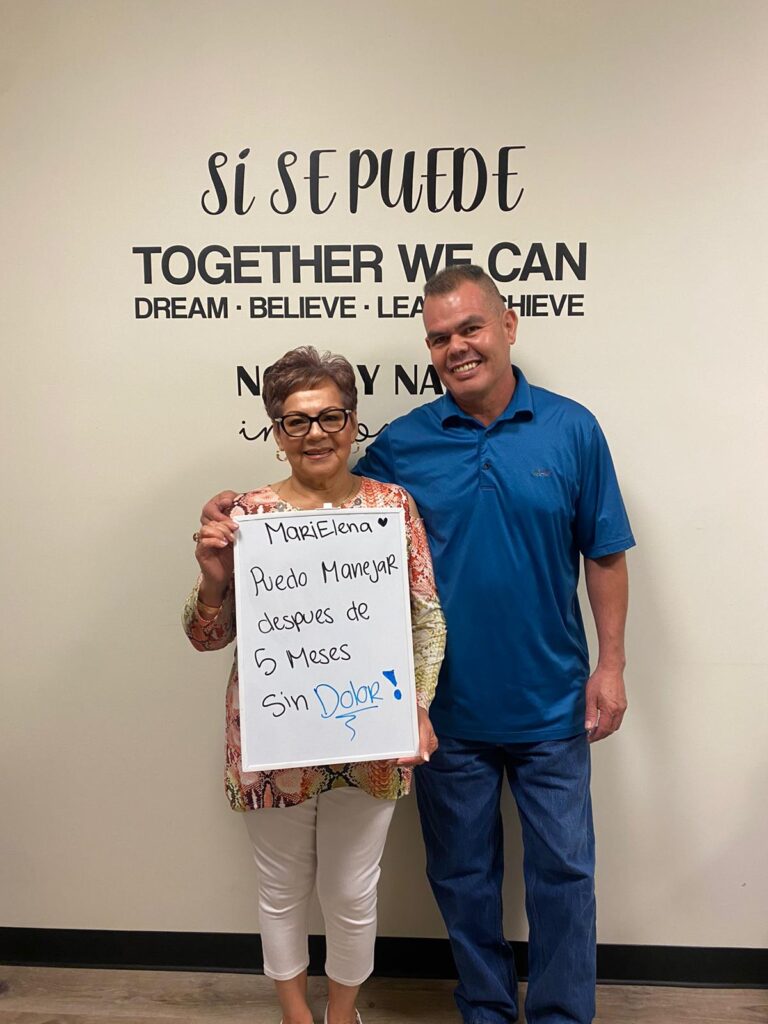 SÍ SE PUEDE
TOGETHER WE CAN
DREAM · BELIEVE ·
NA
MARiElena ♥
Puedo Manejar
despues de
5 Meses
Sin DoloR!